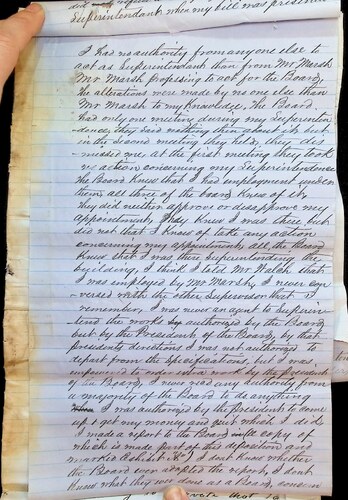 Superintendant when my bill was presen
I had no authority from any one else to
act as Superintendent than from Mr Marsh
Mr Marsh professing to act for the Board,
the alterations were made by no one else than
Mr Marsh to my Knowledge, The Board
had only one meeting during my Superinten
dence, they said nothing then about it, but
in the second meeting they held, they dis
missed me, at the first meeting they took
no action concerning my Superintendence
the Board Knew that I had employment under
them, all three of the board Knew of it,
they did neither approve or disapprove my
appointment, they Knew I was there, but
did not that I Know of take any action
concerning my appointment, all the Board
Knew that I was there Superintending the
building, I think I told Mr Walsh that
I was employed by Mr Marsh, I never con
versed with the other Supervisor that I
remember, I was never an agent to Superin
tend the work by authorized by the Board
but by the President of the Board, by that
presidents directions I was not authorized to
depart from the Specifications, but I was
empowered to order extra work by the president
of the Board, I never had any authority from
a majority of the Board to do anything
I was authorized by the president to come
up & get my money and quit which I did,
I made a report to the Board a copy of
which is made part of this deposition and
marked Exhibit I dont Know whether
the Board ever adopted the report, I dont
Know what they ever done as a Board,